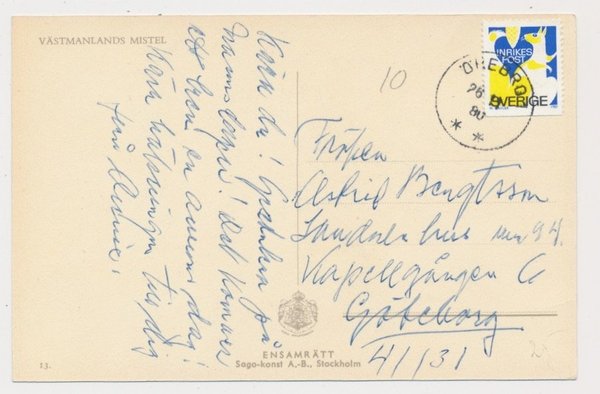 VÄSTMANLANDS MISTEL
Kära du! Gratulera på
namnsdagen! Det kommer
ett brev en annan dag!
Kära hälsningar till dig
från
10
INRIKES
POST
SVERIGE
ÖREBRO
80
Fröken
Astrid Bengtsson
94.
Kapellgången 6
Göteborg
41131
ENSAMRÄTT
Sago-konst A.-B., Stockholm
13.